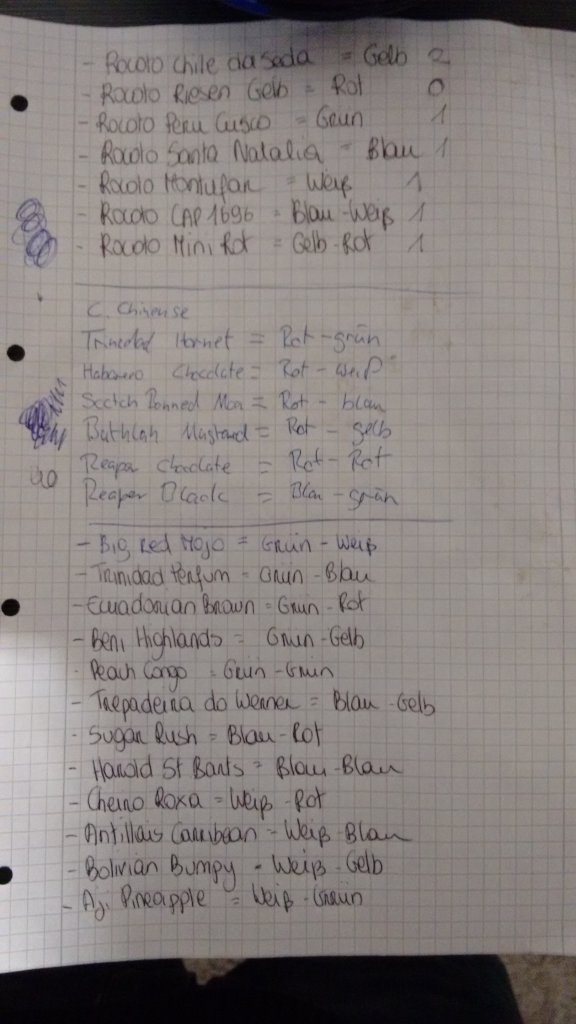 - Rocoto Chile da seda = Gelb 2
- Rocoto Riesen Gelb = Rot 0
- Rocoto Peru Cusco = Grün 1
- Rocoto Santa Natalia = Blau 1
- Rocoto Montufar = Weiß 1
- Rocoto CAP 1696 = Blau-Weiß 1
- Rocoto Mini Rot = Gelb-Rot 1
C. Chinense
Trinidad Hornet = Rot-grün
Habanero Chocolate = Rot-weiß
Scotch Bonned Moa = Rot-blau
Buthlah Mustard = Rot-gelb
Reaper Choclate = Rot-Rot
Reaper Black = Blau-grün
- Big Red Mojo = Grün-Weiß
- Trinidad Perfum = Grün-Blau
- Ecuadorian Brown = Grün-Rot
- Beni Highlands = Grün-Gelb
- Peach Congo = Grün-Grün
- Trepadeira do Werner = Blau-Gelb
- Sugar Rush = Blau-Rot
- Harold St Barts = Blau-Blau
- Cheiro Roxa = Weiß-Rot
- Antillais Carribean = Weiß-Blau
- Bolivian Bumpy = Weiß-Gelb
- Aji Pineapple = Weiß-Grün